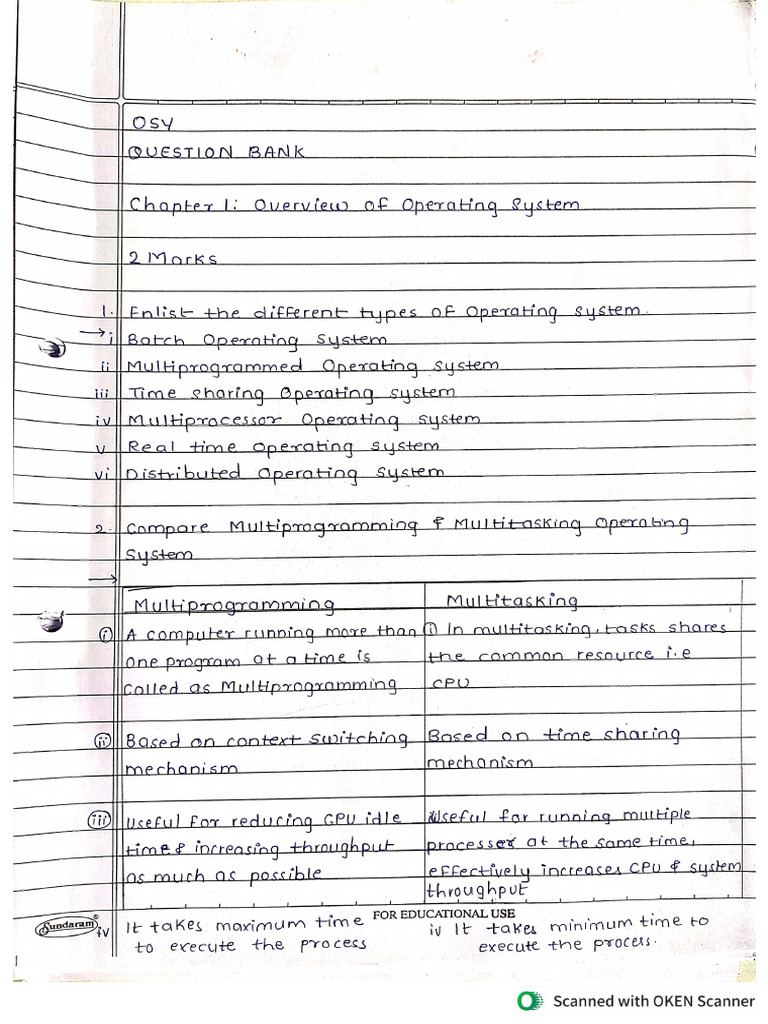 OSY
QUESTION BANK
Chapter 1: Overview of Operating System
2 Marks
1. Enlist the different types of operating system.
→ i Batch Operating System
ii Multiprogrammed Operating system
iii Time sharing Operating system
iv Multiprocessor Operating system
v Real time operating system
vi Distributed Operating System
2. Compare Multiprogramming & Multitasking Operating
System
→
Multiprogramming
(i) A computer running more than
one program at a time is
called as Multiprogramming
(ii) Based on context switching
mechanism
(iii) Useful for reducing CPU idle
time & increasing throughput
as much as possible
iv It takes maximum time
to execute the process
Multitasking
(i) In multitasking, tasks shares
the common resource i.e
CPU
Based on time sharing
mechanism
Useful for running multiple
processer at the same time,
effectively increases CPU & system
throughput
iv It takes minimum time to
execute the process.
Sundaram®
FOR EDUCATIONAL USE
Scanned with OKEN Scanner